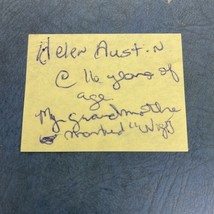 Helen Austin
C 16 years of
age.
My grandmother
marked "Wigt